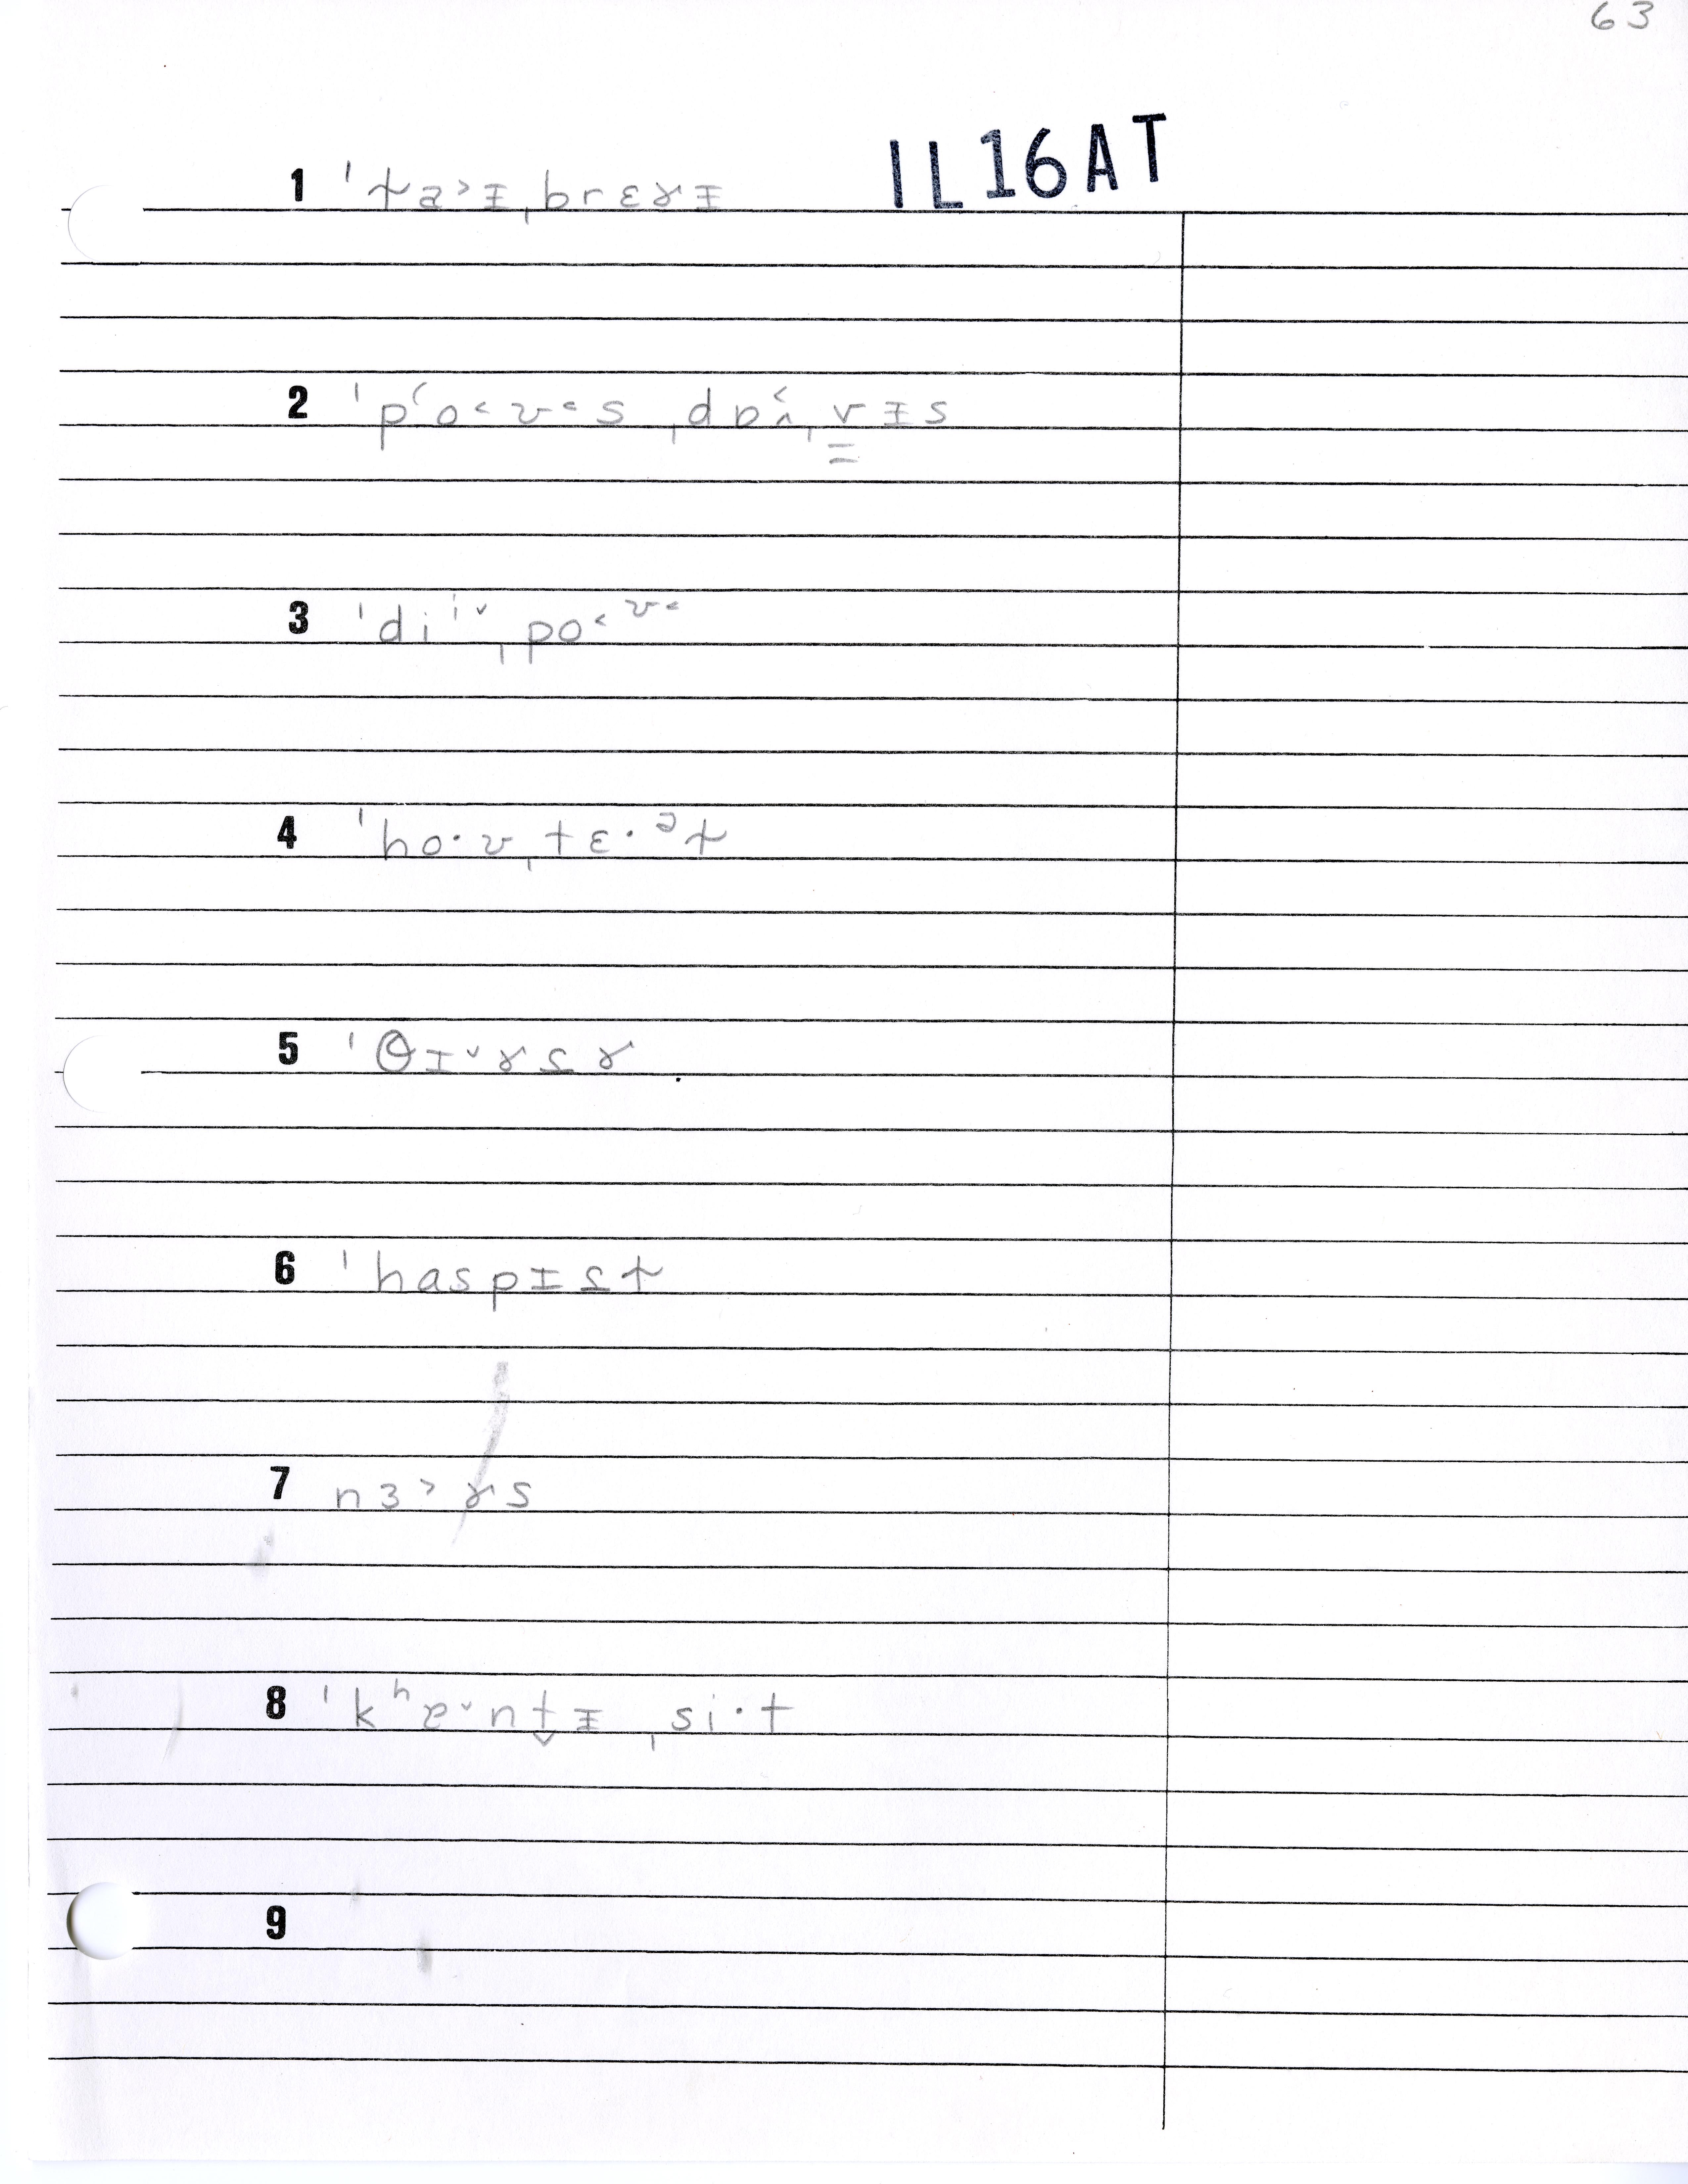 63
IL16AT
1 ˈt̴a˃ɪ̵ˌbrɛɤɪ̵
2 ˈpʻo˂ʊ˂s ˌdɒ˂ʌˌv̳ɪ̵s
3 ˈdiⁱ˅ˌpo˂ᶷ˂
4 ˈho·ʊˌtɛ·ᵊt̴
5 ˈθɪ̵˅ɤsɤ
6 ˈhaspɪ̵st̴
7 nɜ˃ɤs
8 ˈkʰɐ˅nt̬ɪ̵ ˌsi·t
9